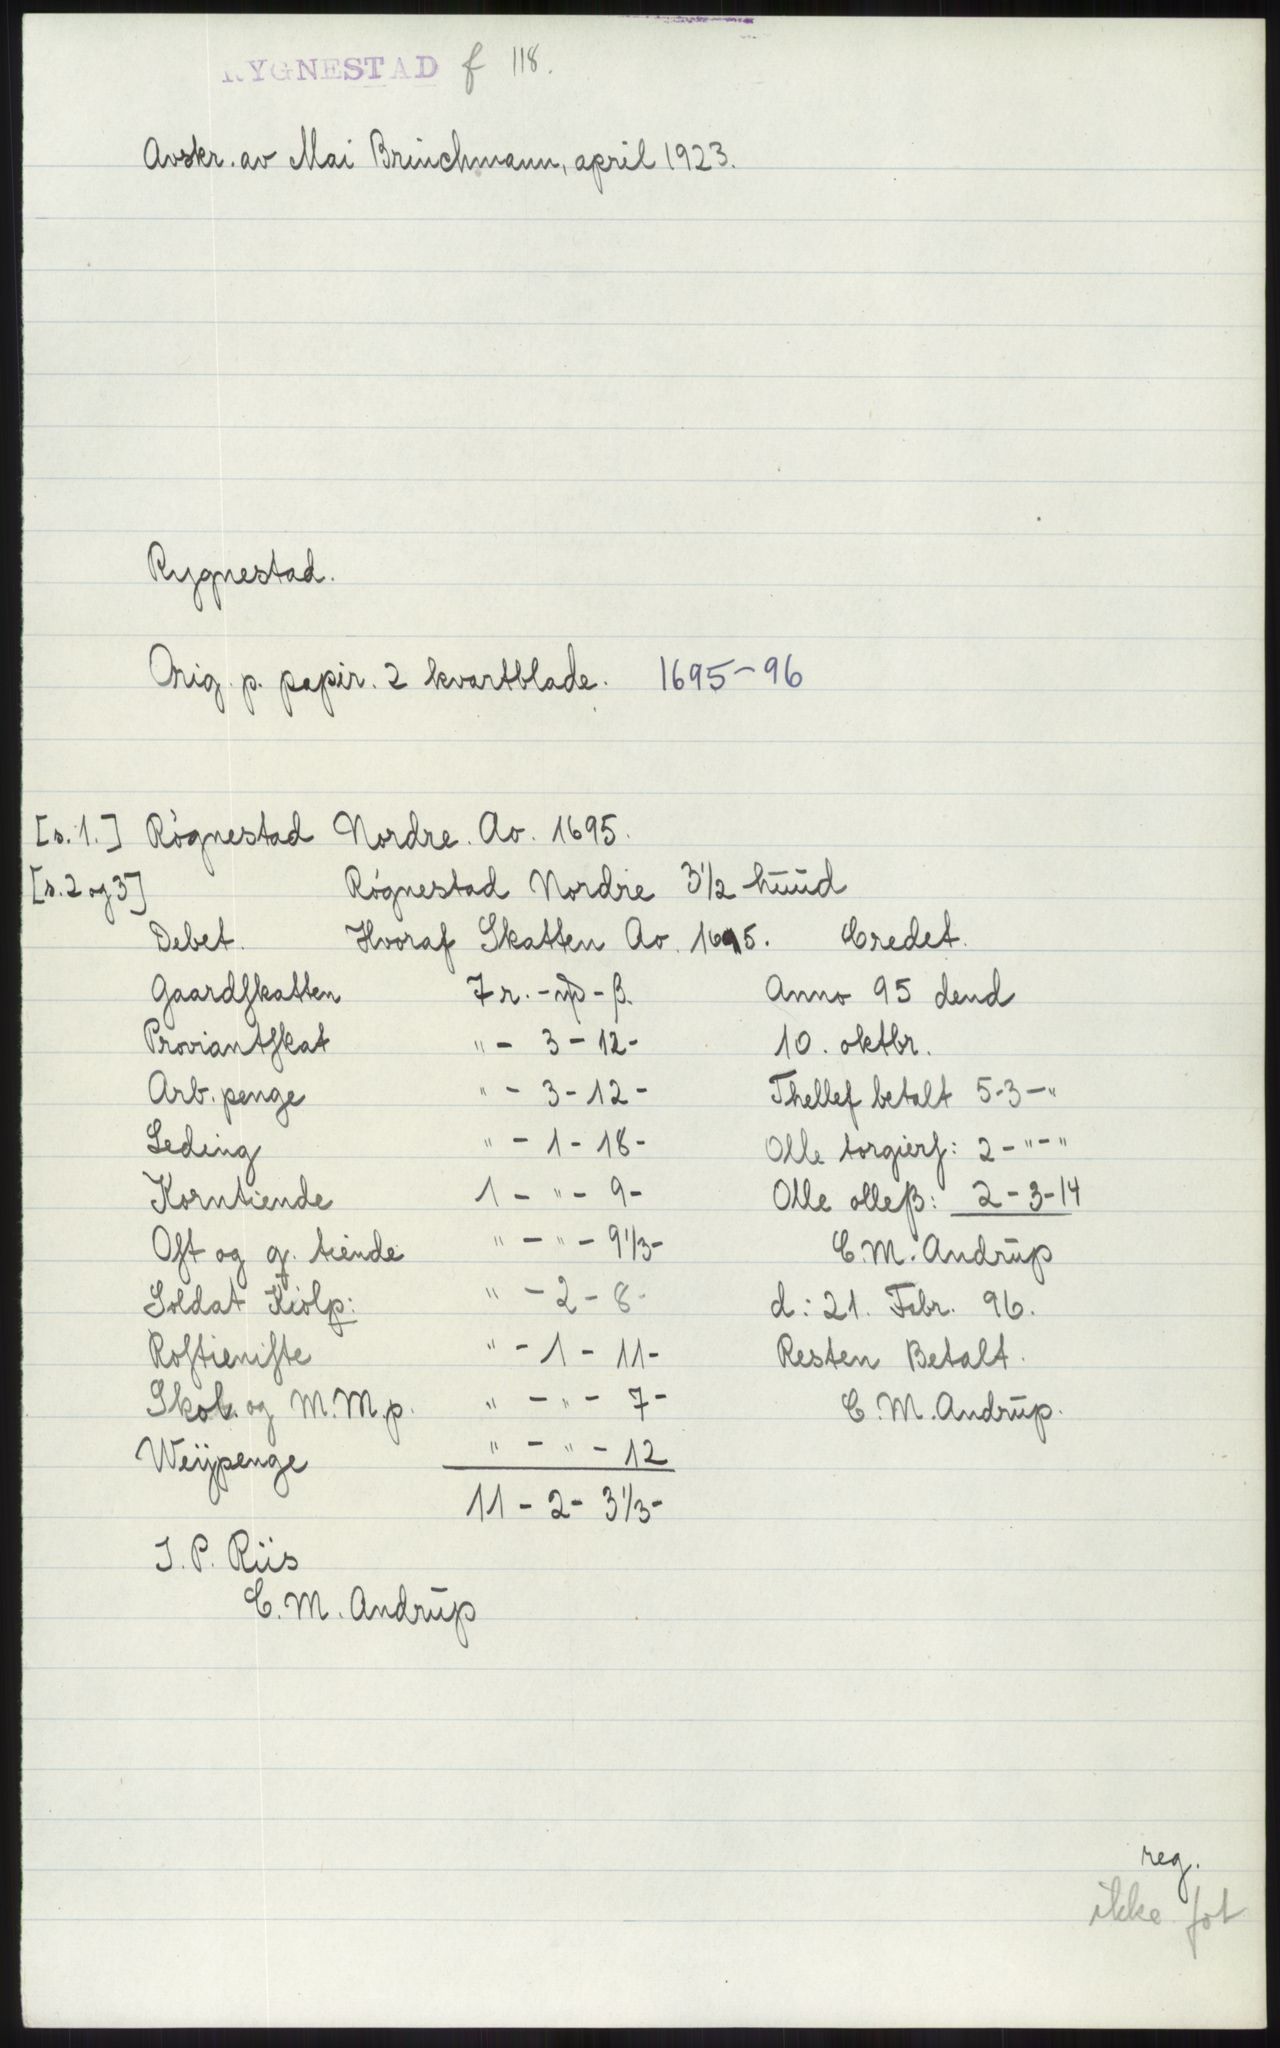 RYGNESTAD f 118.
Avskr. av Mai Brinchmann, april 1923.
Rygnestad.
Orig. p. papir. 2 kvartblade. 1695-96
[s. 1.] Røgnestad Nordre. Ao. 1695.
[s. 2 og 3] Røgnestad Nordre 3½ huud
Debet. Hvoraf Skatten Ao. 1695. Credet.
Gaardskatten 7 r. - - β. Anno 95 dend
Proviantskat " - 3 - 12 - 10. oktbr.
Arb. penge " - 3 - 12 - Thellef betalt 5-3-"
Leding " - 1 - 18 - Olle torgiers: 2 - " - "
Korntiende 1 - " - 9 - Olle olleβ: 2 - 3 - 14
Ost og q. tiende " - " - 9⅓ - C. M. Andrup
Soldat Kiolp: " - 2 - 8 - d: 21. Febr. 96.
Rostieniste " - 1 - 11 - Resten Betalt.
Skob. og M.M.p. " - " - 7 - C. M. Andrup.
Weijpenge " - " - 12
11 - 2 - 3⅓ -
J. P. Riis
C. M. Andrup
reg.
ikke fot